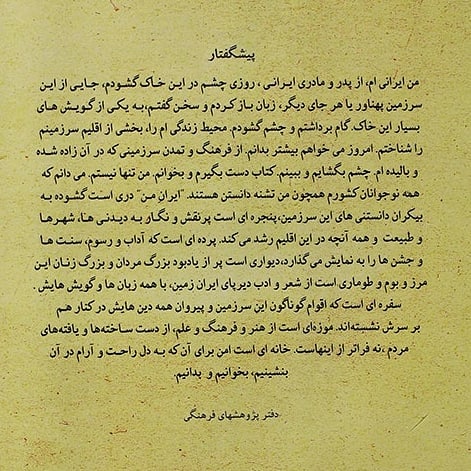 پیشگفتار
من ایرانی ام، از پدر و مادری ایرانی، روزی چشم در این خاک گشودم، جایی از این
سرزمین پهناور یا هر جای دیگر، زبان باز کردم و سخن گفتم، به یکی از گویش های
بسیار این خاک. گام برداشتم و چشم گشودم. محیط زندگی ام را، بخشی از اقلیم سرزمینم
را شناختم. امروز می خواهم بیشتر بدانم. از فرهنگ و تمدن سرزمینی که در آن زاده شده
و بالیده ام. چشم بگشایم و ببینم. کتاب دست بگیرم و بخوانم. من تنها نیستم. می دانم که
همه نوجوانان کشورم همچون من تشنه دانستن هستند. "ایران من" دری است گشوده به
بیکران دانستنی های این سرزمین، پنجره ای است پرنقش و نگار به دیدنی ها، شهرها
و طبیعت و همه آنچه در این اقلیم رشد می کند. پرده ای است که آداب و رسوم، سنت ها
و جشن ها را به نمایش می گذارد، دیواری است پر از یادبود بزرگ مردان و بزرگ زنان این
مرز و بوم و طوماری است از شعر و ادب دیرپای ایران زمین، با همه زبان ها و گویش هایش.
سفره ای است که اقوام گوناگون این سرزمین و پیروان همه دین هایش در کنار هم
بر سرش نشسته‌اند. موزه‌ای است از هنر و فرهنگ و علم، از دست ساخته‌ها و یافته‌های
مردم، نه فراتر از اینهاست. خانه ای است امن برای آن که به دل راحت و آرام در آن
بنشینیم، بخوانیم و بدانیم.
دفتر پژوهشهای فرهنگی